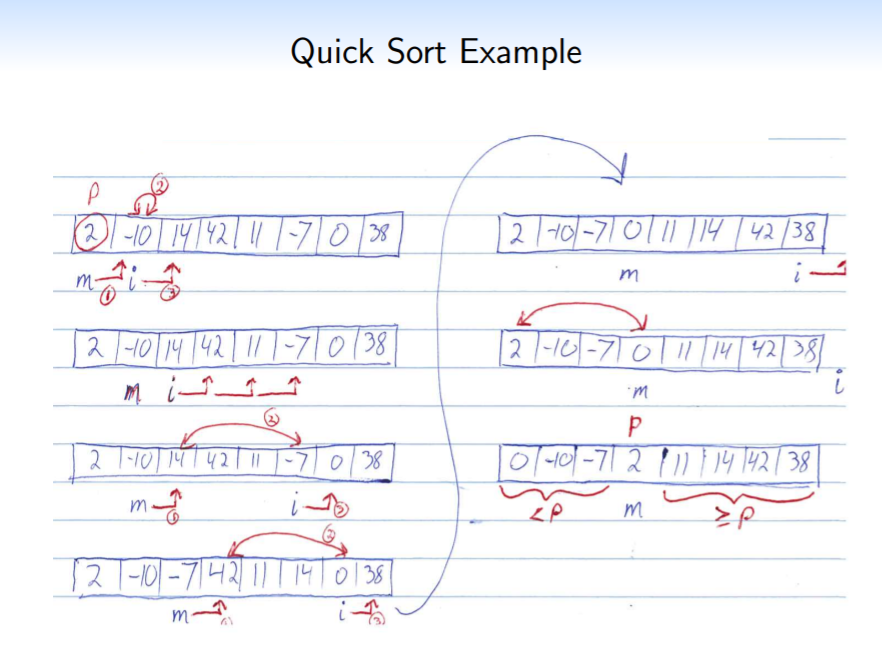 Quick Sort Example
p ②
2 -10 14 42 11 -7 0 38
m ① i ③
2 -10 14 42 11 -7 0 38
m i
②
2 -10 14 42 11 -7 0 38
m ① i ③
②
2 -10 -7 42 11 14 0 38
m ① i ③
2 -10 -7 0 11 14 42 38
m i
2 -10 -7 0 11 14 42 38
m i
p
0 -10 -7 2 11 14 42 38
<p m ≥p